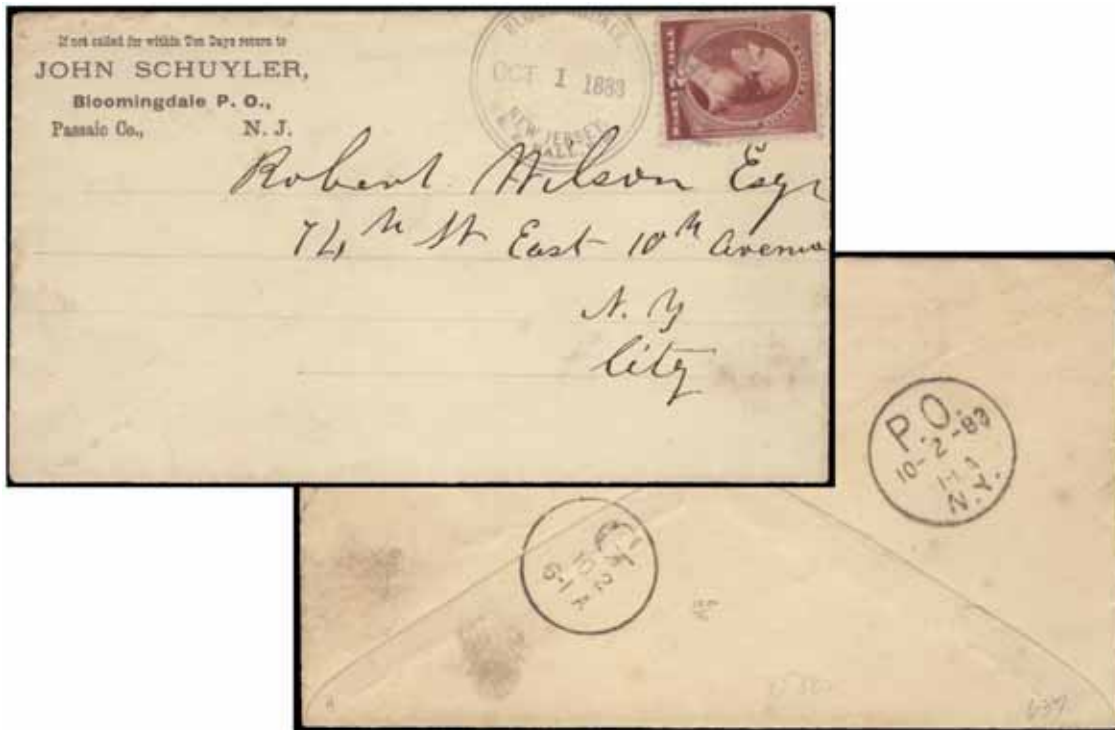 If not called for within Ten Days return to
JOHN SCHUYLER,
Bloomingdale P. O.,
Passaic Co., N. J.
OCT 1 1883
NEW JERSEY.
Robert Wilson Esqr
74th St East 10th Avenue
N. Y
City
P.O.
10-2-83
N.Y.
10 2
6-1 A
637